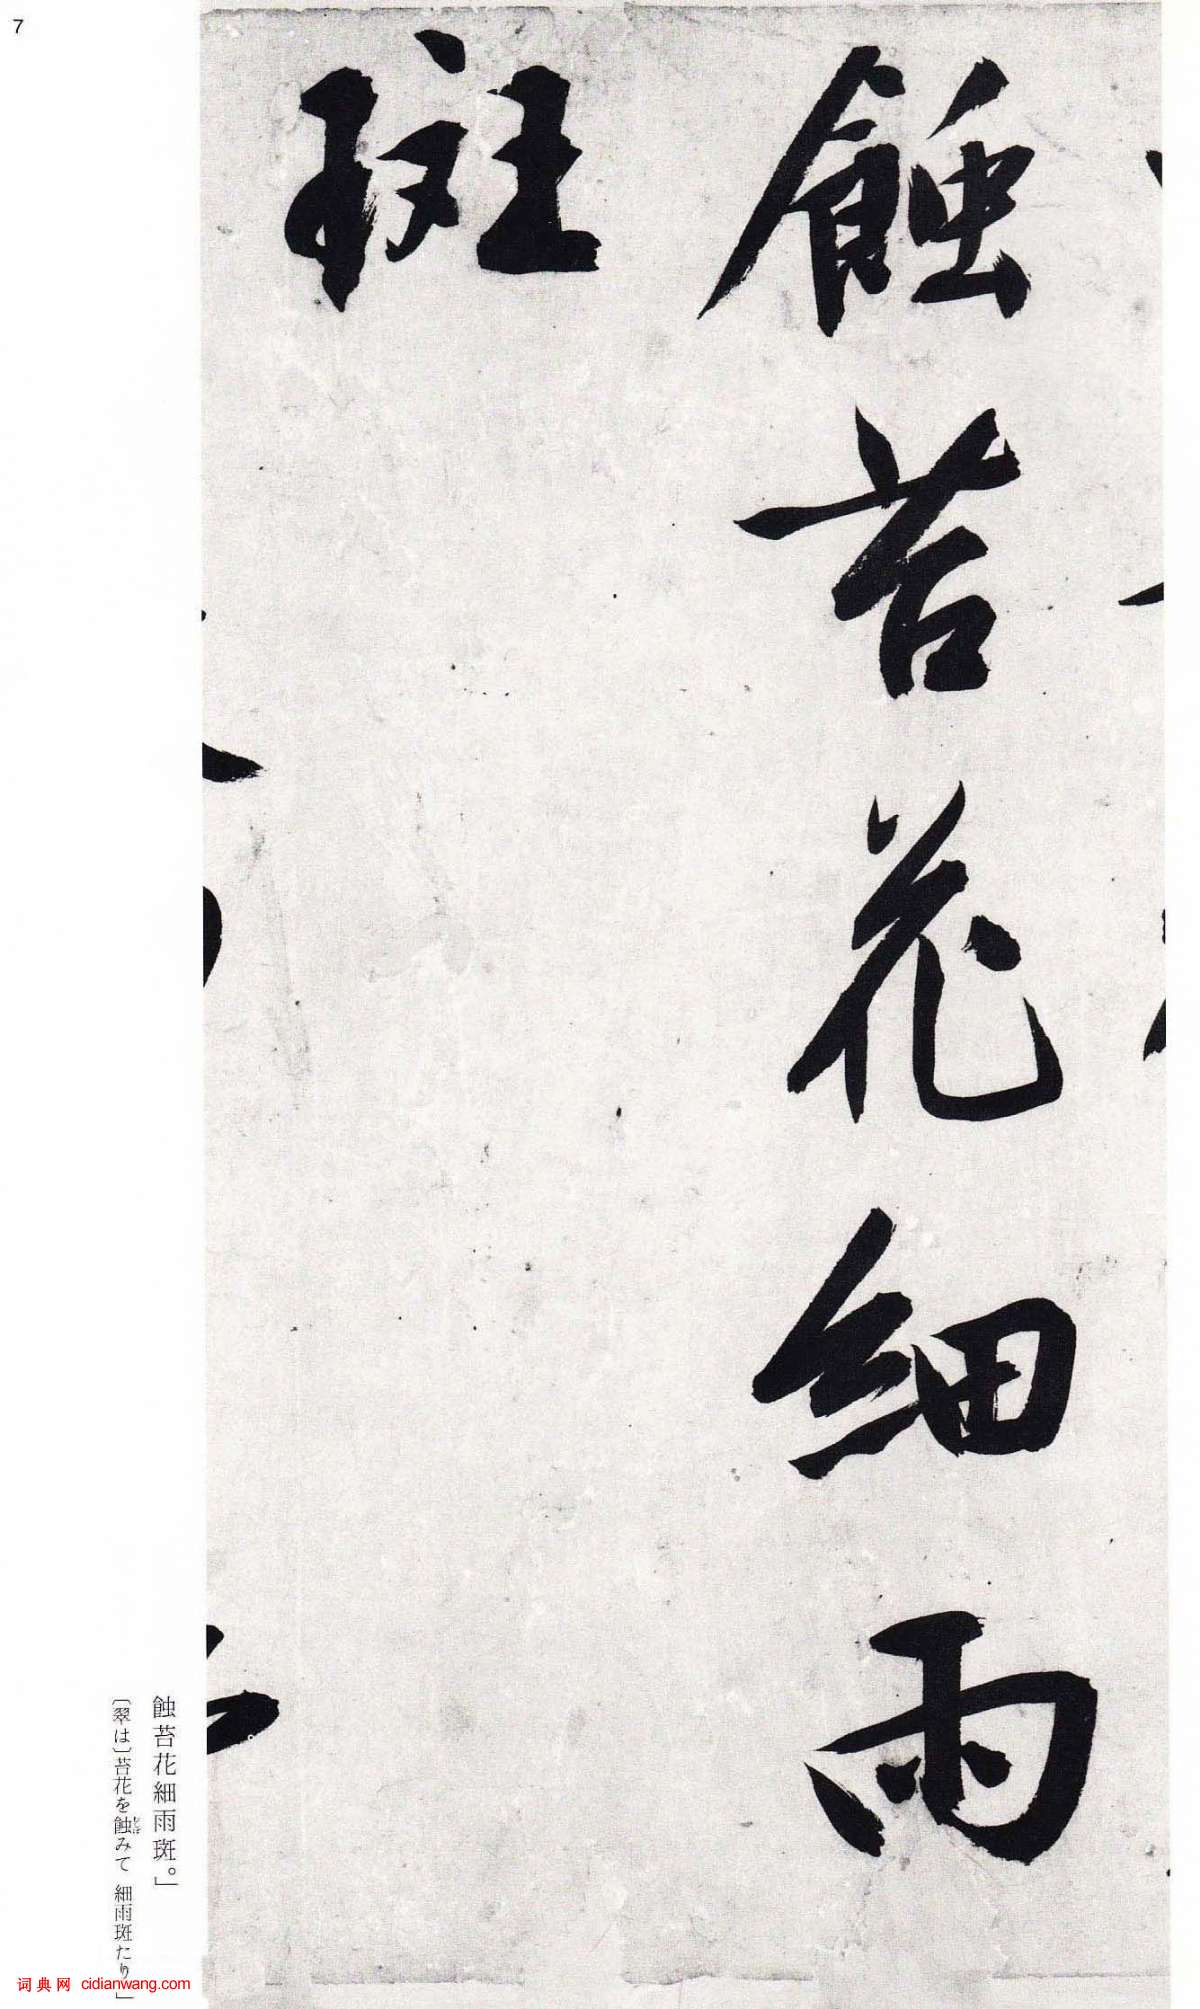 7
蝕苔花細雨
斑
蝕苔花細雨斑。」
〔翠は〕苔花を蝕みて 細雨斑たり」
词典网 cidianwang.com